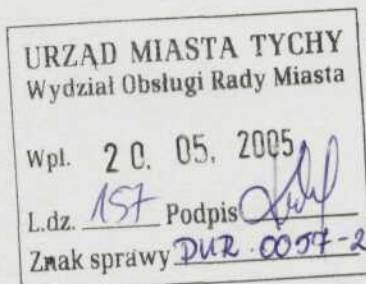 URZĄD MIASTA TYCHY
Wydział Obsługi Rady Miasta
Wpl. 20. 05. 2005
L.dz. 157 Podpis
Znak sprawy DUR.0057-2